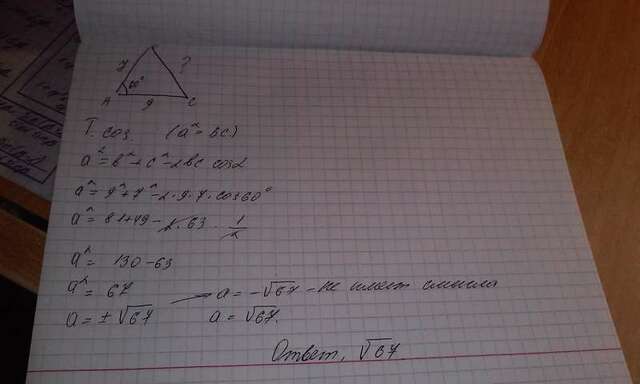 7 ?
60°
A 9 C
T. cos (a^2 = BC)
a^2 = b^2 + c^2 - 2bc cosα
a^2 = 9^2 + 7^2 - 2·9·7·cos60°
a^2 = 81+49 - 2·63·1/2
a^2 = 130-63
a^2 = 67 → a = -√67 - не имеет смысла
a = ±√67 a = √67.
Ответ, √67